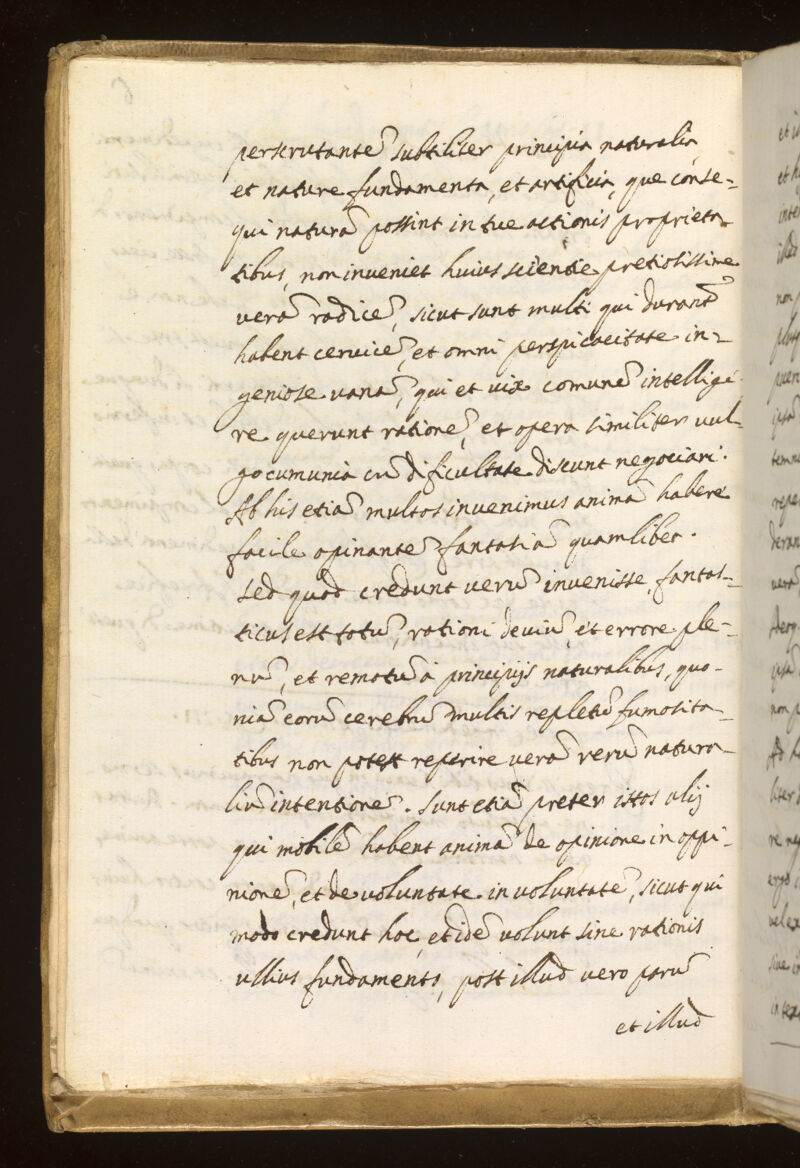 perscrutante̅ subtiliter principia naturalia,
et nature fundamenta, et artificia, que conse=
qui natura̅ possint in tue actionis proprieta=
tibus, non inveniet huius scientie pretiosissime
vera̅ radice̅, sicut sunt multi qui durant̅
habent cervice̅, et omni perspicacitate in=
geniose vana̅, qui et vix comune̅ intellige=
re querunt ratione̅, et opera similiter vul=
go cumunia cu̅ dificultate discunt negociari.
Ab his etia̅ multos invenimus anima̅ habere
facile opinante̅ fantasia̅ quamlibet.
Sed quod credunt veru̅ invenisse, fantas=
ticus est totu̅, rationi deviu̅, et errore ple=
nu̅, et remotu̅ à principijs naturalibus, quo=
nia̅ eoru̅ cerebru̅ multis repletu̅ fumosita=
tibus non potest reperire vera̅ reru̅ natura=
liu̅ intentione̅. Sunt etia̅ preter istos alij
qui mobile̅ habent anima̅ de opinione in oppi=
nione̅, et de voluntate in voluntate̅, sicut qui
modo credunt hoc, et ide̅ volunt sine rationis
ullius fundamento, post illud vero paru̅
et illud